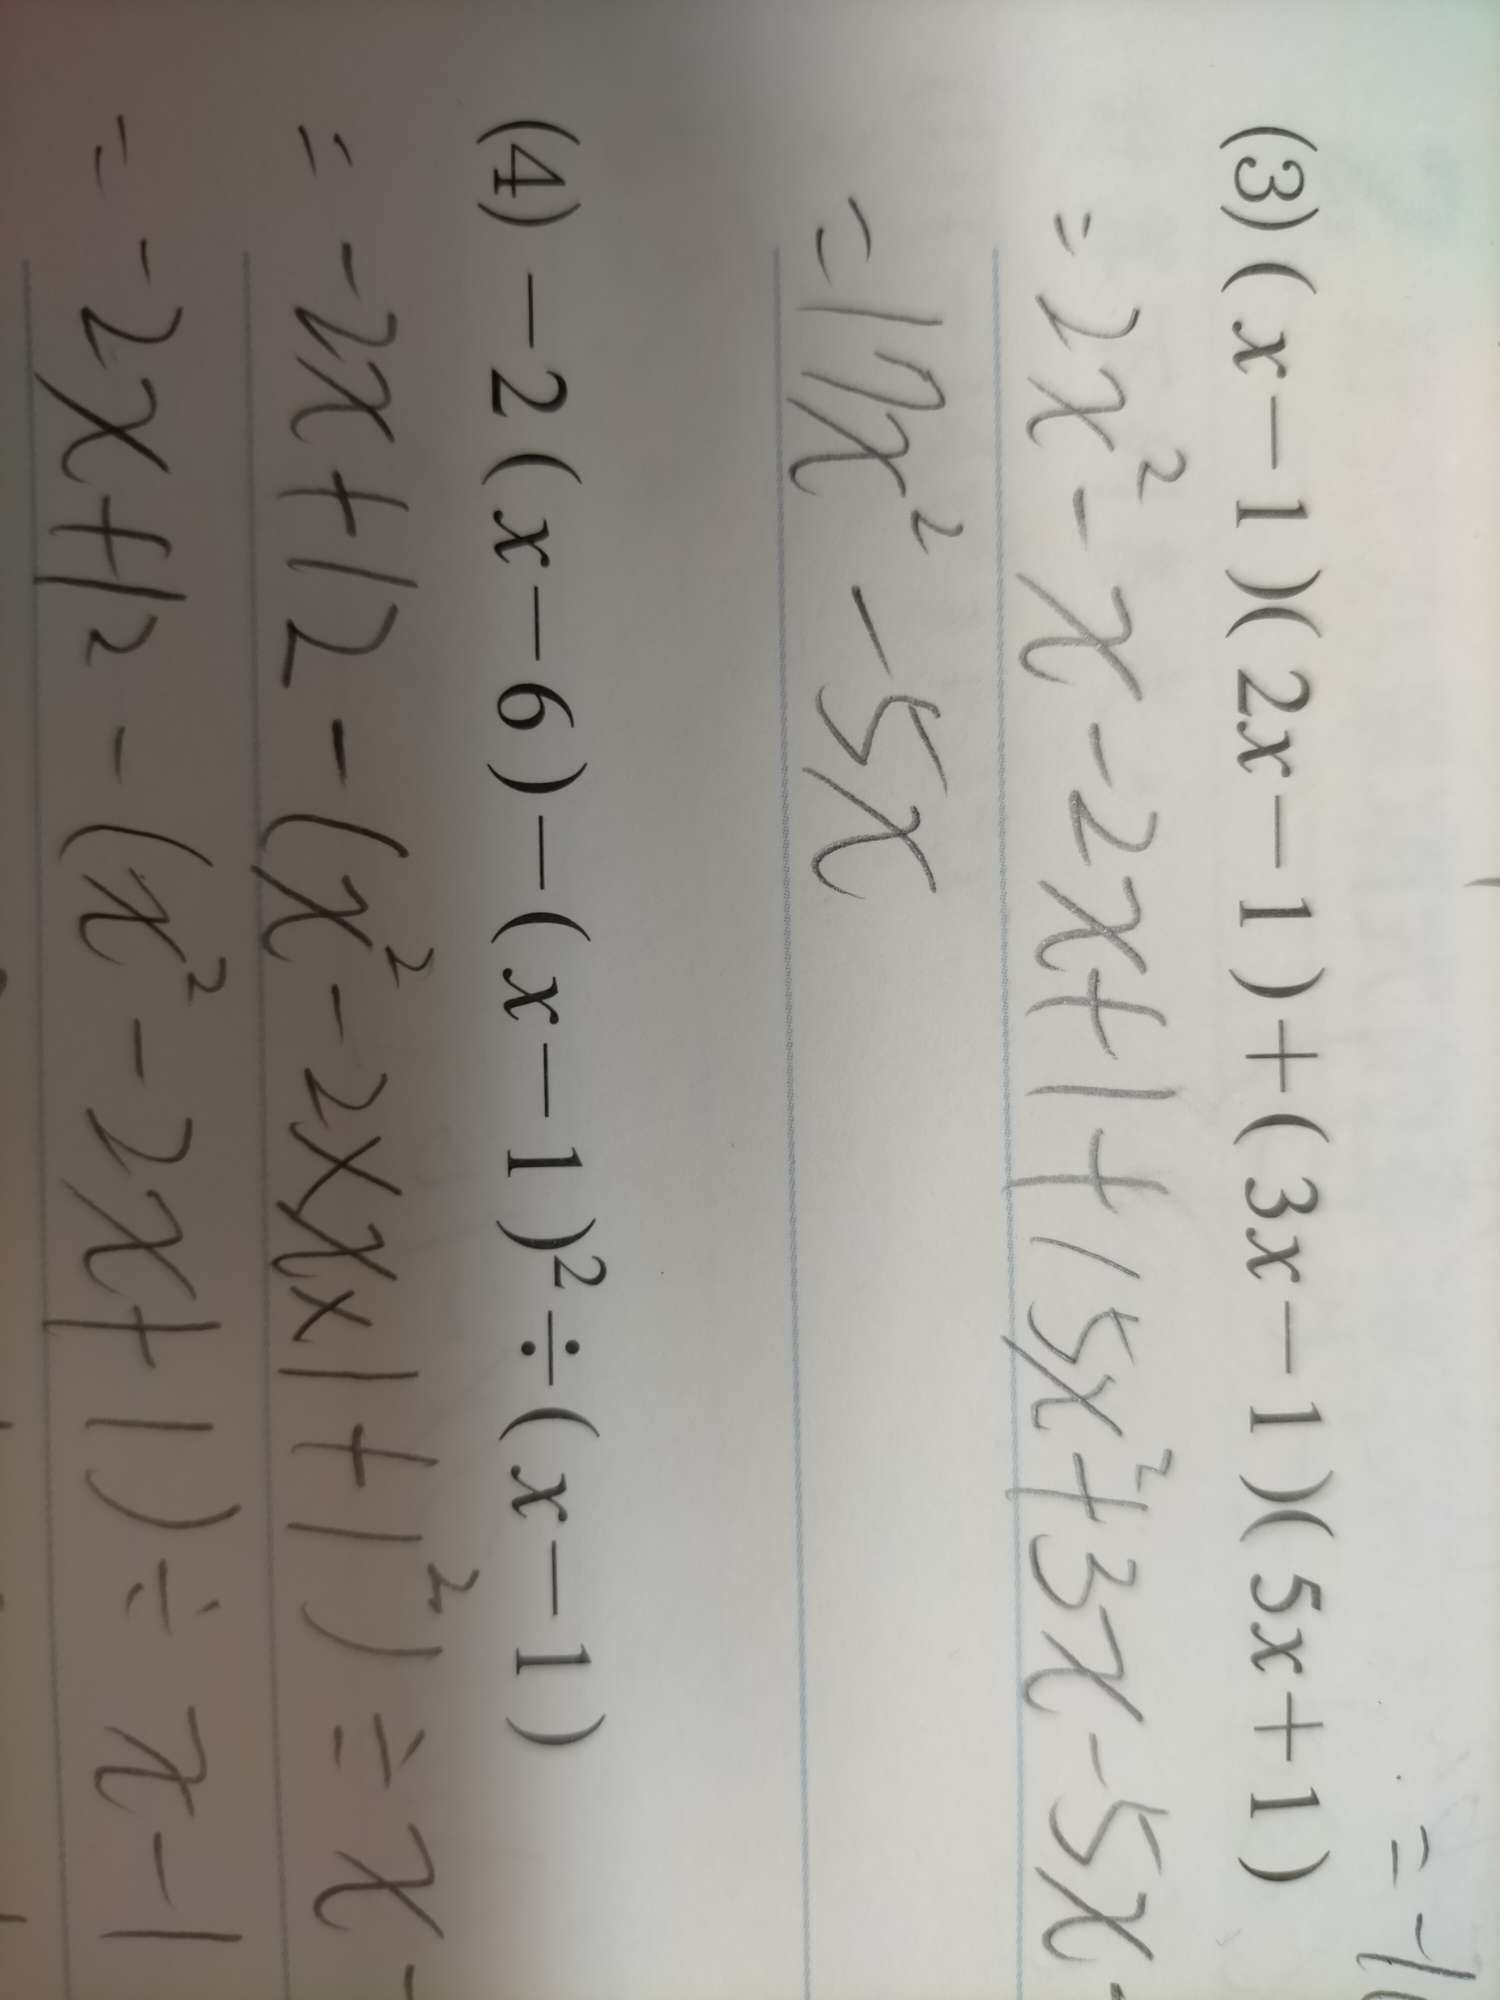 = -1
(3) (x-1)(2x-1)+(3x-1)(5x+1)
= 2x²-x-2x+1+15x²+3x-5x-
= 17x²-5x
(4) -2(x-6)-(x-1)²÷(x-1)
= -2x+12-(x²-2×x×1+1²)÷x-
= -2x+12-(x²-2x+1)÷x-1